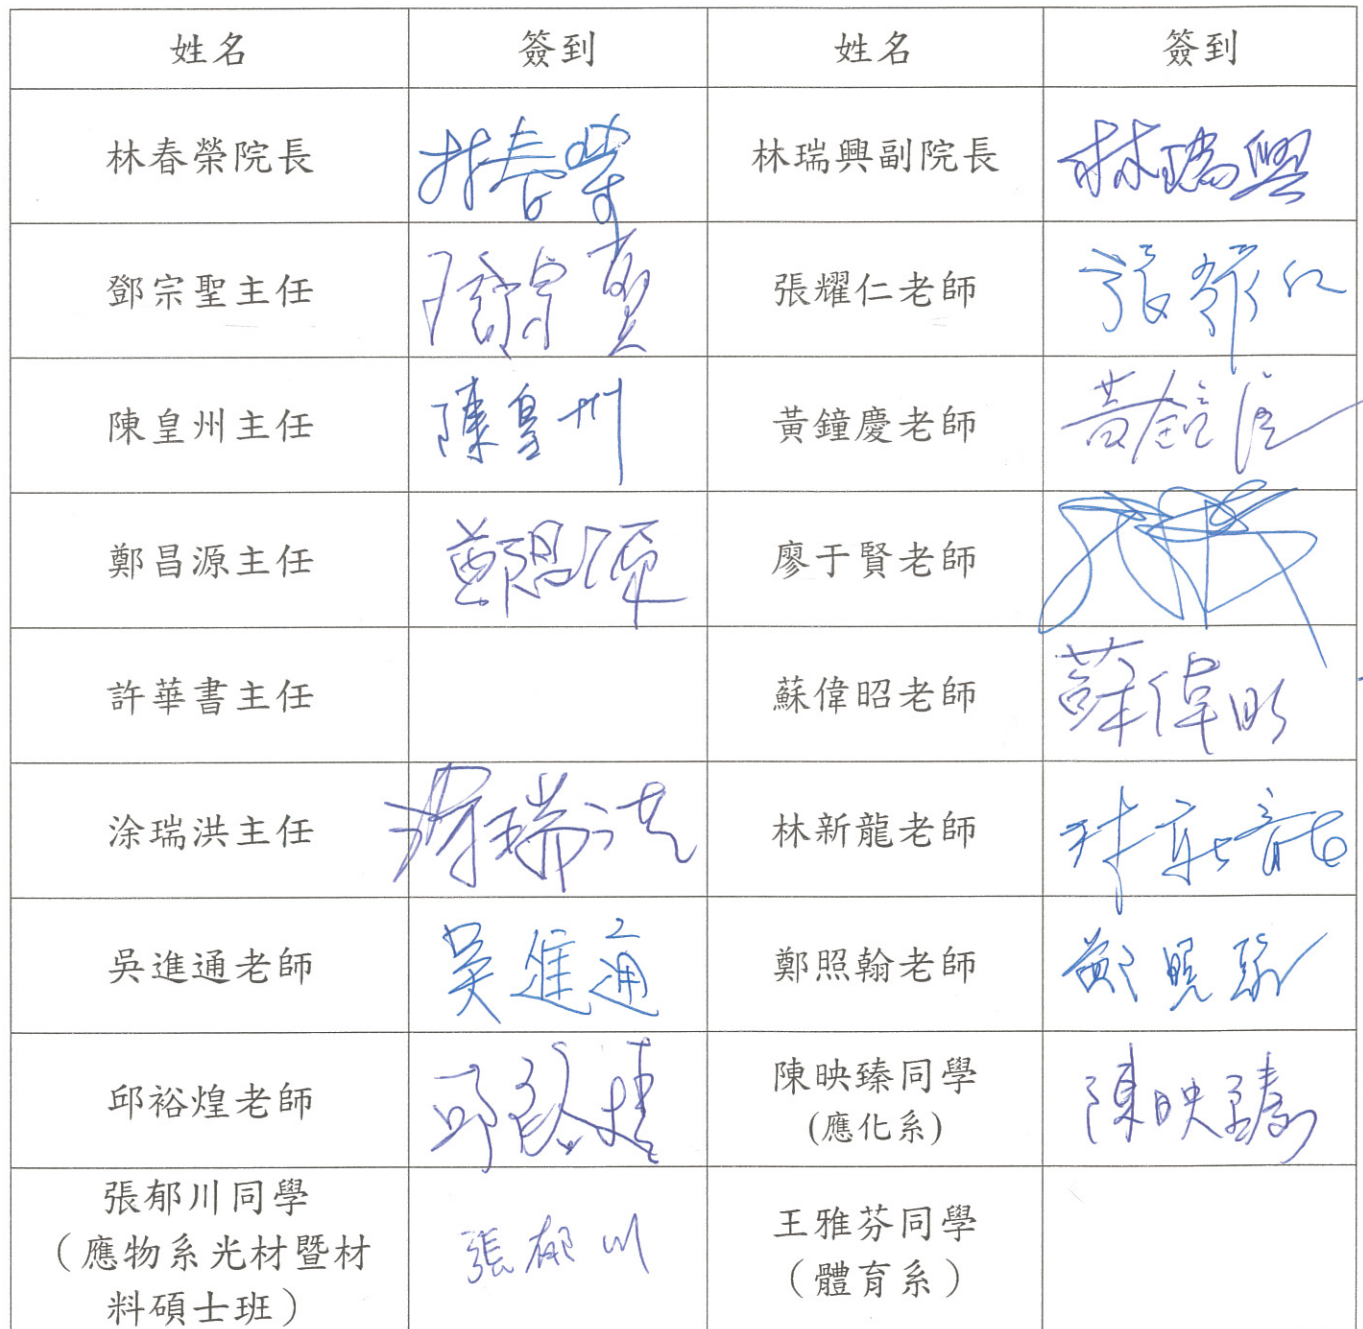 姓名 簽到 姓名 簽到
林春榮院長 林春榮 林瑞興副院長 林瑞興
鄧宗聖主任 鄧宗聖 張耀仁老師 張耀仁
陳皇州主任 陳皇州 黃鐘慶老師 黃鐘慶
鄭昌源主任 鄭昌源 廖于賢老師
許華書主任 蘇偉昭老師 蘇偉昭
涂瑞洪主任 涂瑞洪 林新龍老師 林新龍
吳進通老師 吳進通 鄭照翰老師 鄭照翰
邱裕煌老師 邱裕煌 陳映臻同學 陳映臻
(應化系)
張郁川同學 張郁川 王雅芬同學
（應物系光材暨材 （體育系）
料碩士班）